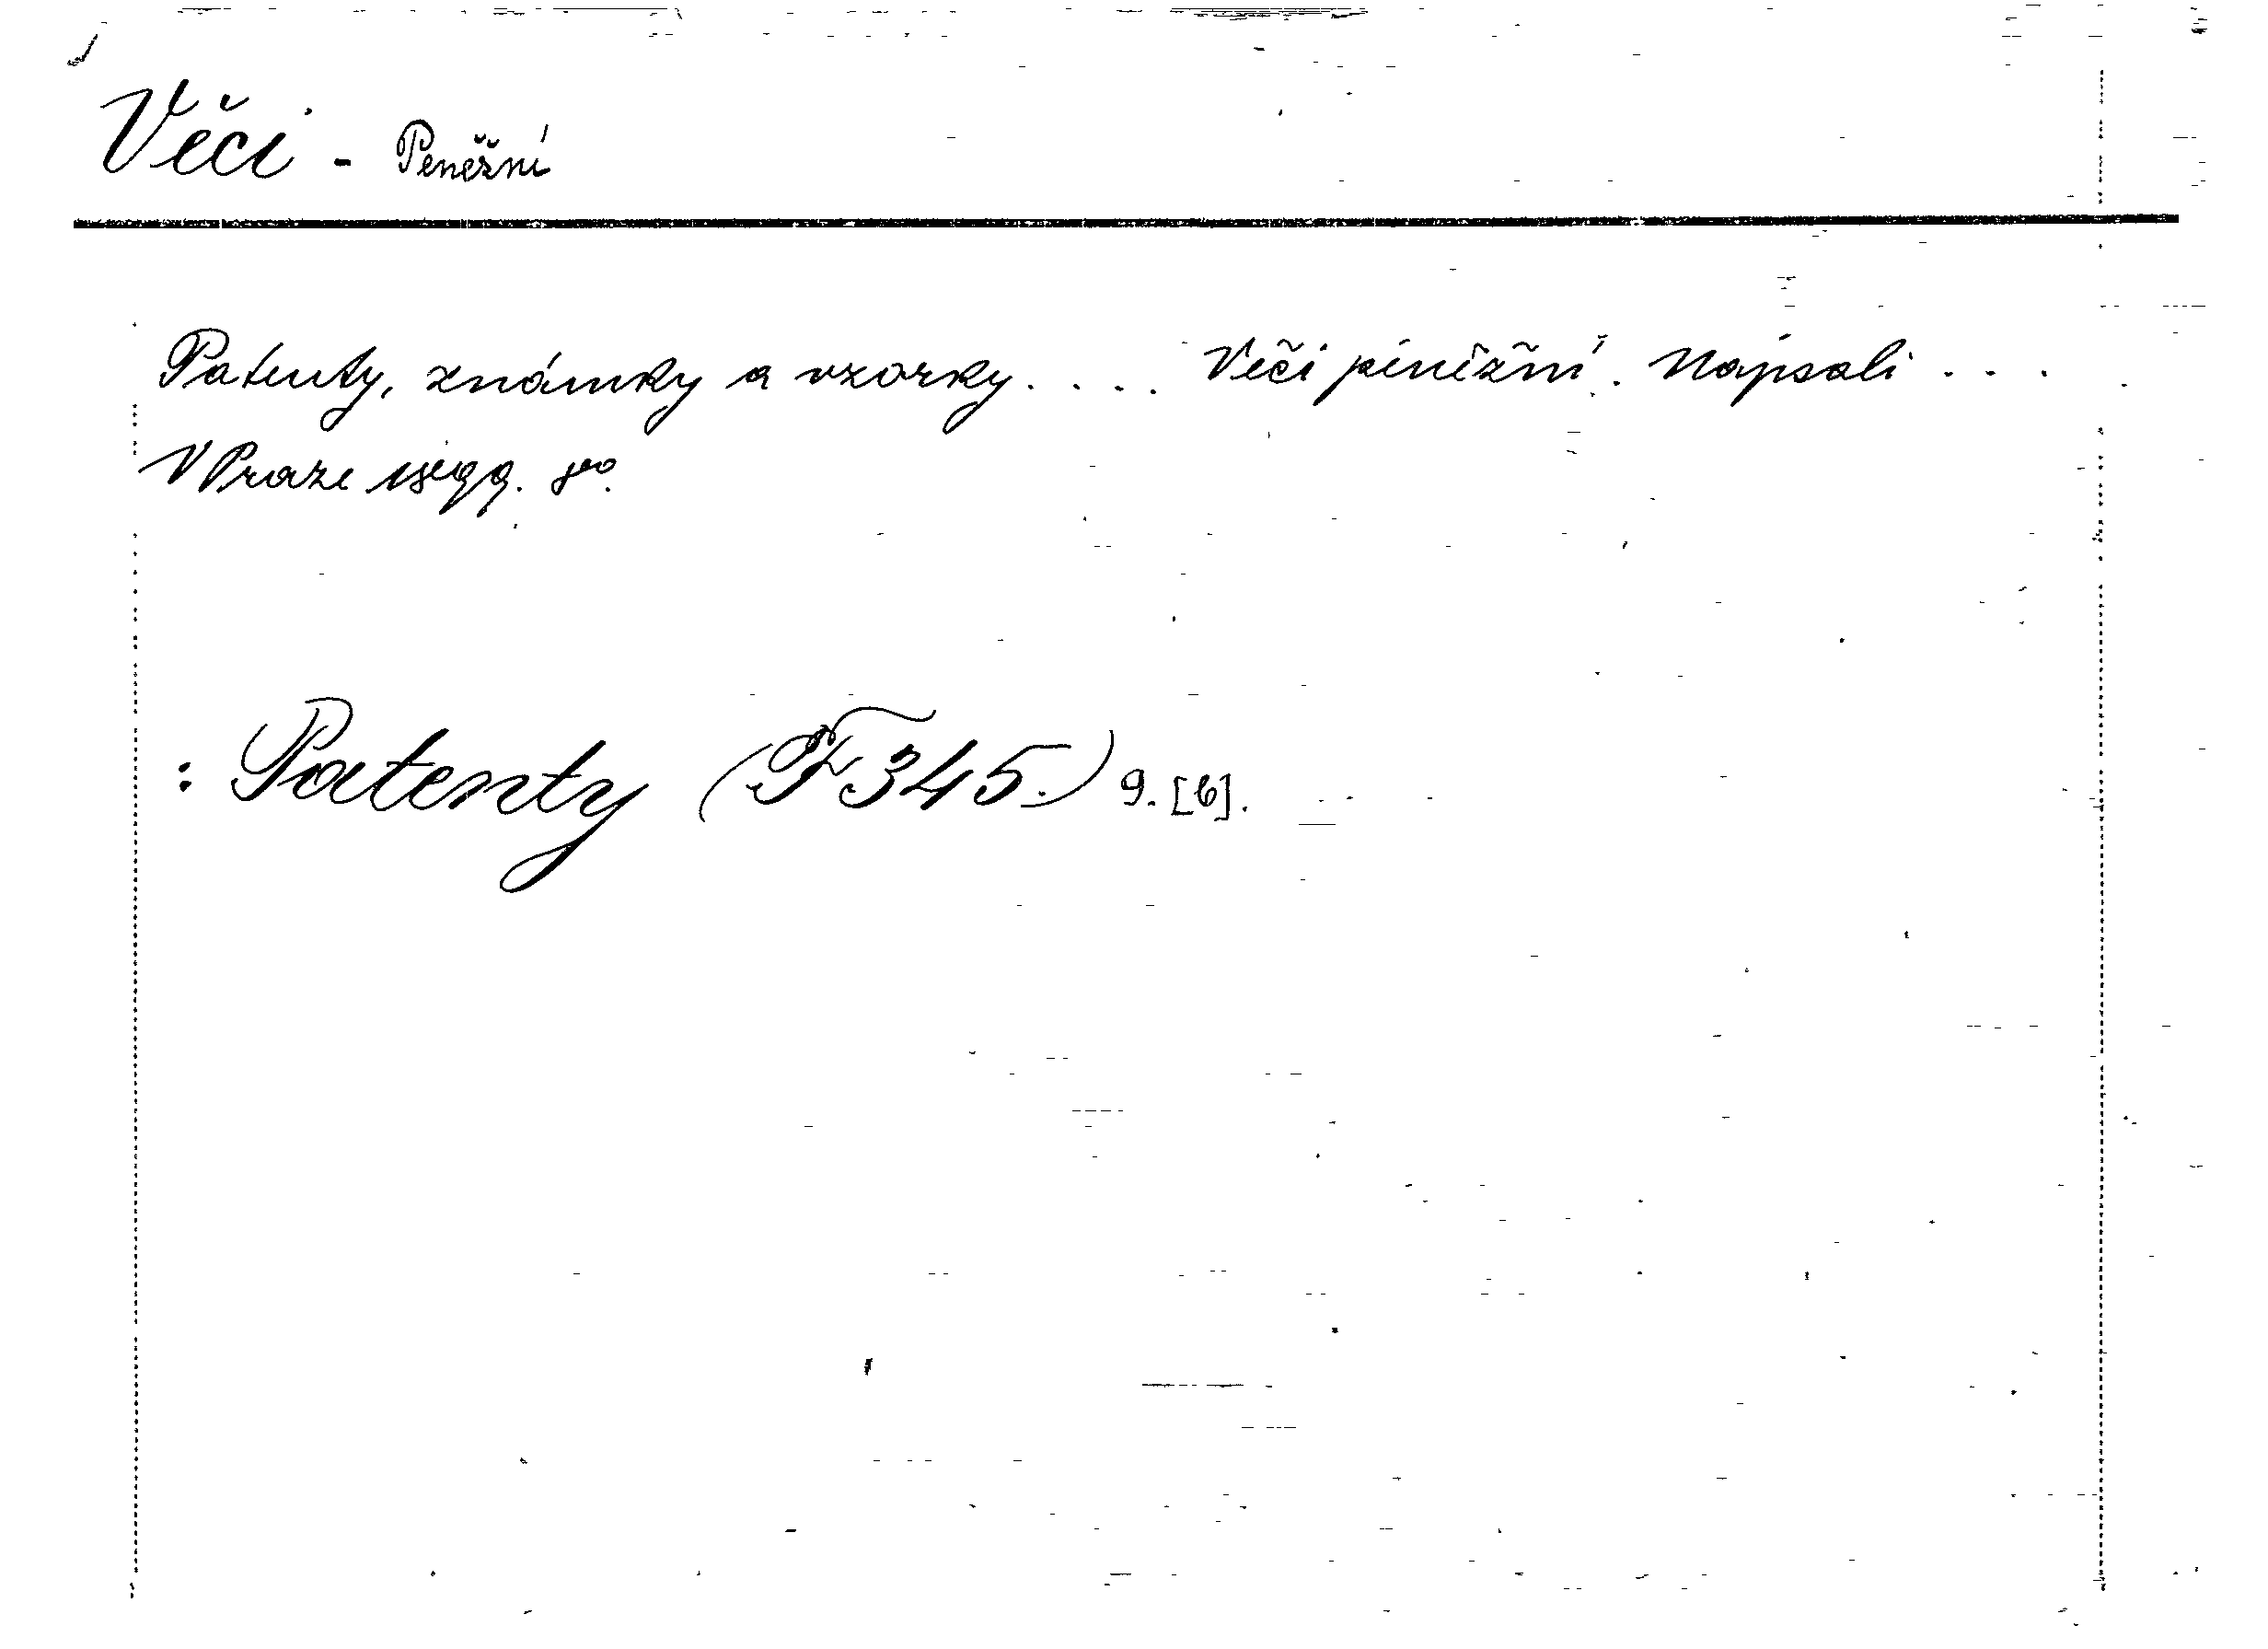 Věci - Peněžní
Patenty, známky a vzorky. . . . Věci peněžní. Napsali . . .
V Praze 1899. 8º.
: Patenty (F 345.) 9. [6].